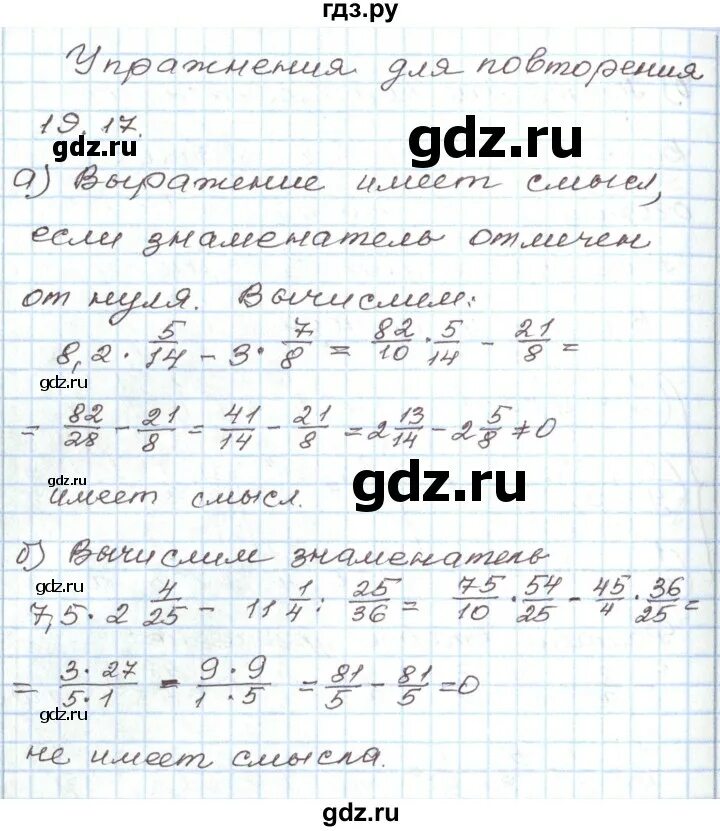 гдз.ру
Упражнения для повторения
19.17.
gdz.ru
gdz.ru
а) Выражение имеет смысл,
если знаменатель отличен
от нуля. Вычислим:
8,2 · 5/14 − 3 · 7/8 = 82/10 · 5/14 − 21/8 =
gdz.ru
= 82/28 − 21/8 = 41/14 − 21/8 = 2 13/14 − 2 5/8 ≠ 0
gdz.ru
gdz.ru
имеет смысл.
б) Вычислим знаменатель
gdz.ru
7,5 · 2 4/25 − 11 1/4 : 25/36 = 75/10 · 54/25 − 45/4 · 36/25 =
= 3·27/5·1 − 9·9/1·5 = 81/5 − 81/5 = 0
gdz.ru
не имеет смысла.
gdz.ru